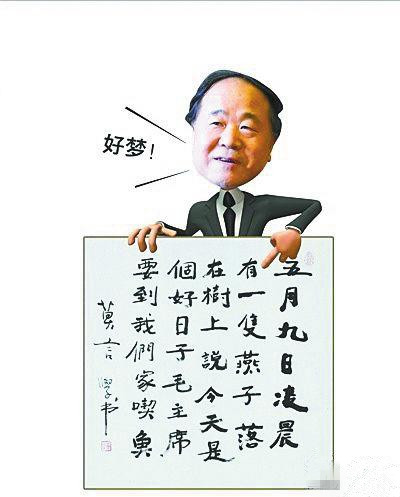 好梦!
五月九日凌晨
有一隻燕子落
在樹上說今天是
個好日子毛主席
要到我們家喫魚
莫言學书